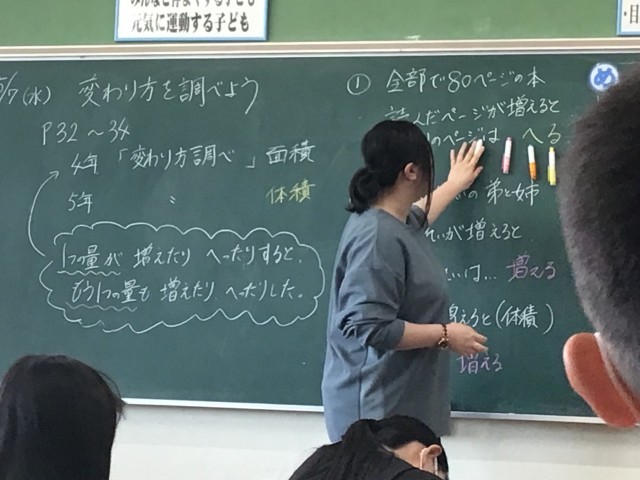 元気に運動する子ども
/7(水) 変わり方を調べよう
P32～34
4年「変わり方調べ」面積
5年 〃 体積
1つの量が 増えたり へったりすると、
もう1つの量も 増えたり へったりした。
① 全部で80ページの本
んだページが増えると
のページは へる
め
の弟と姉
が増えると
は… 増える
えると(体積)
増える